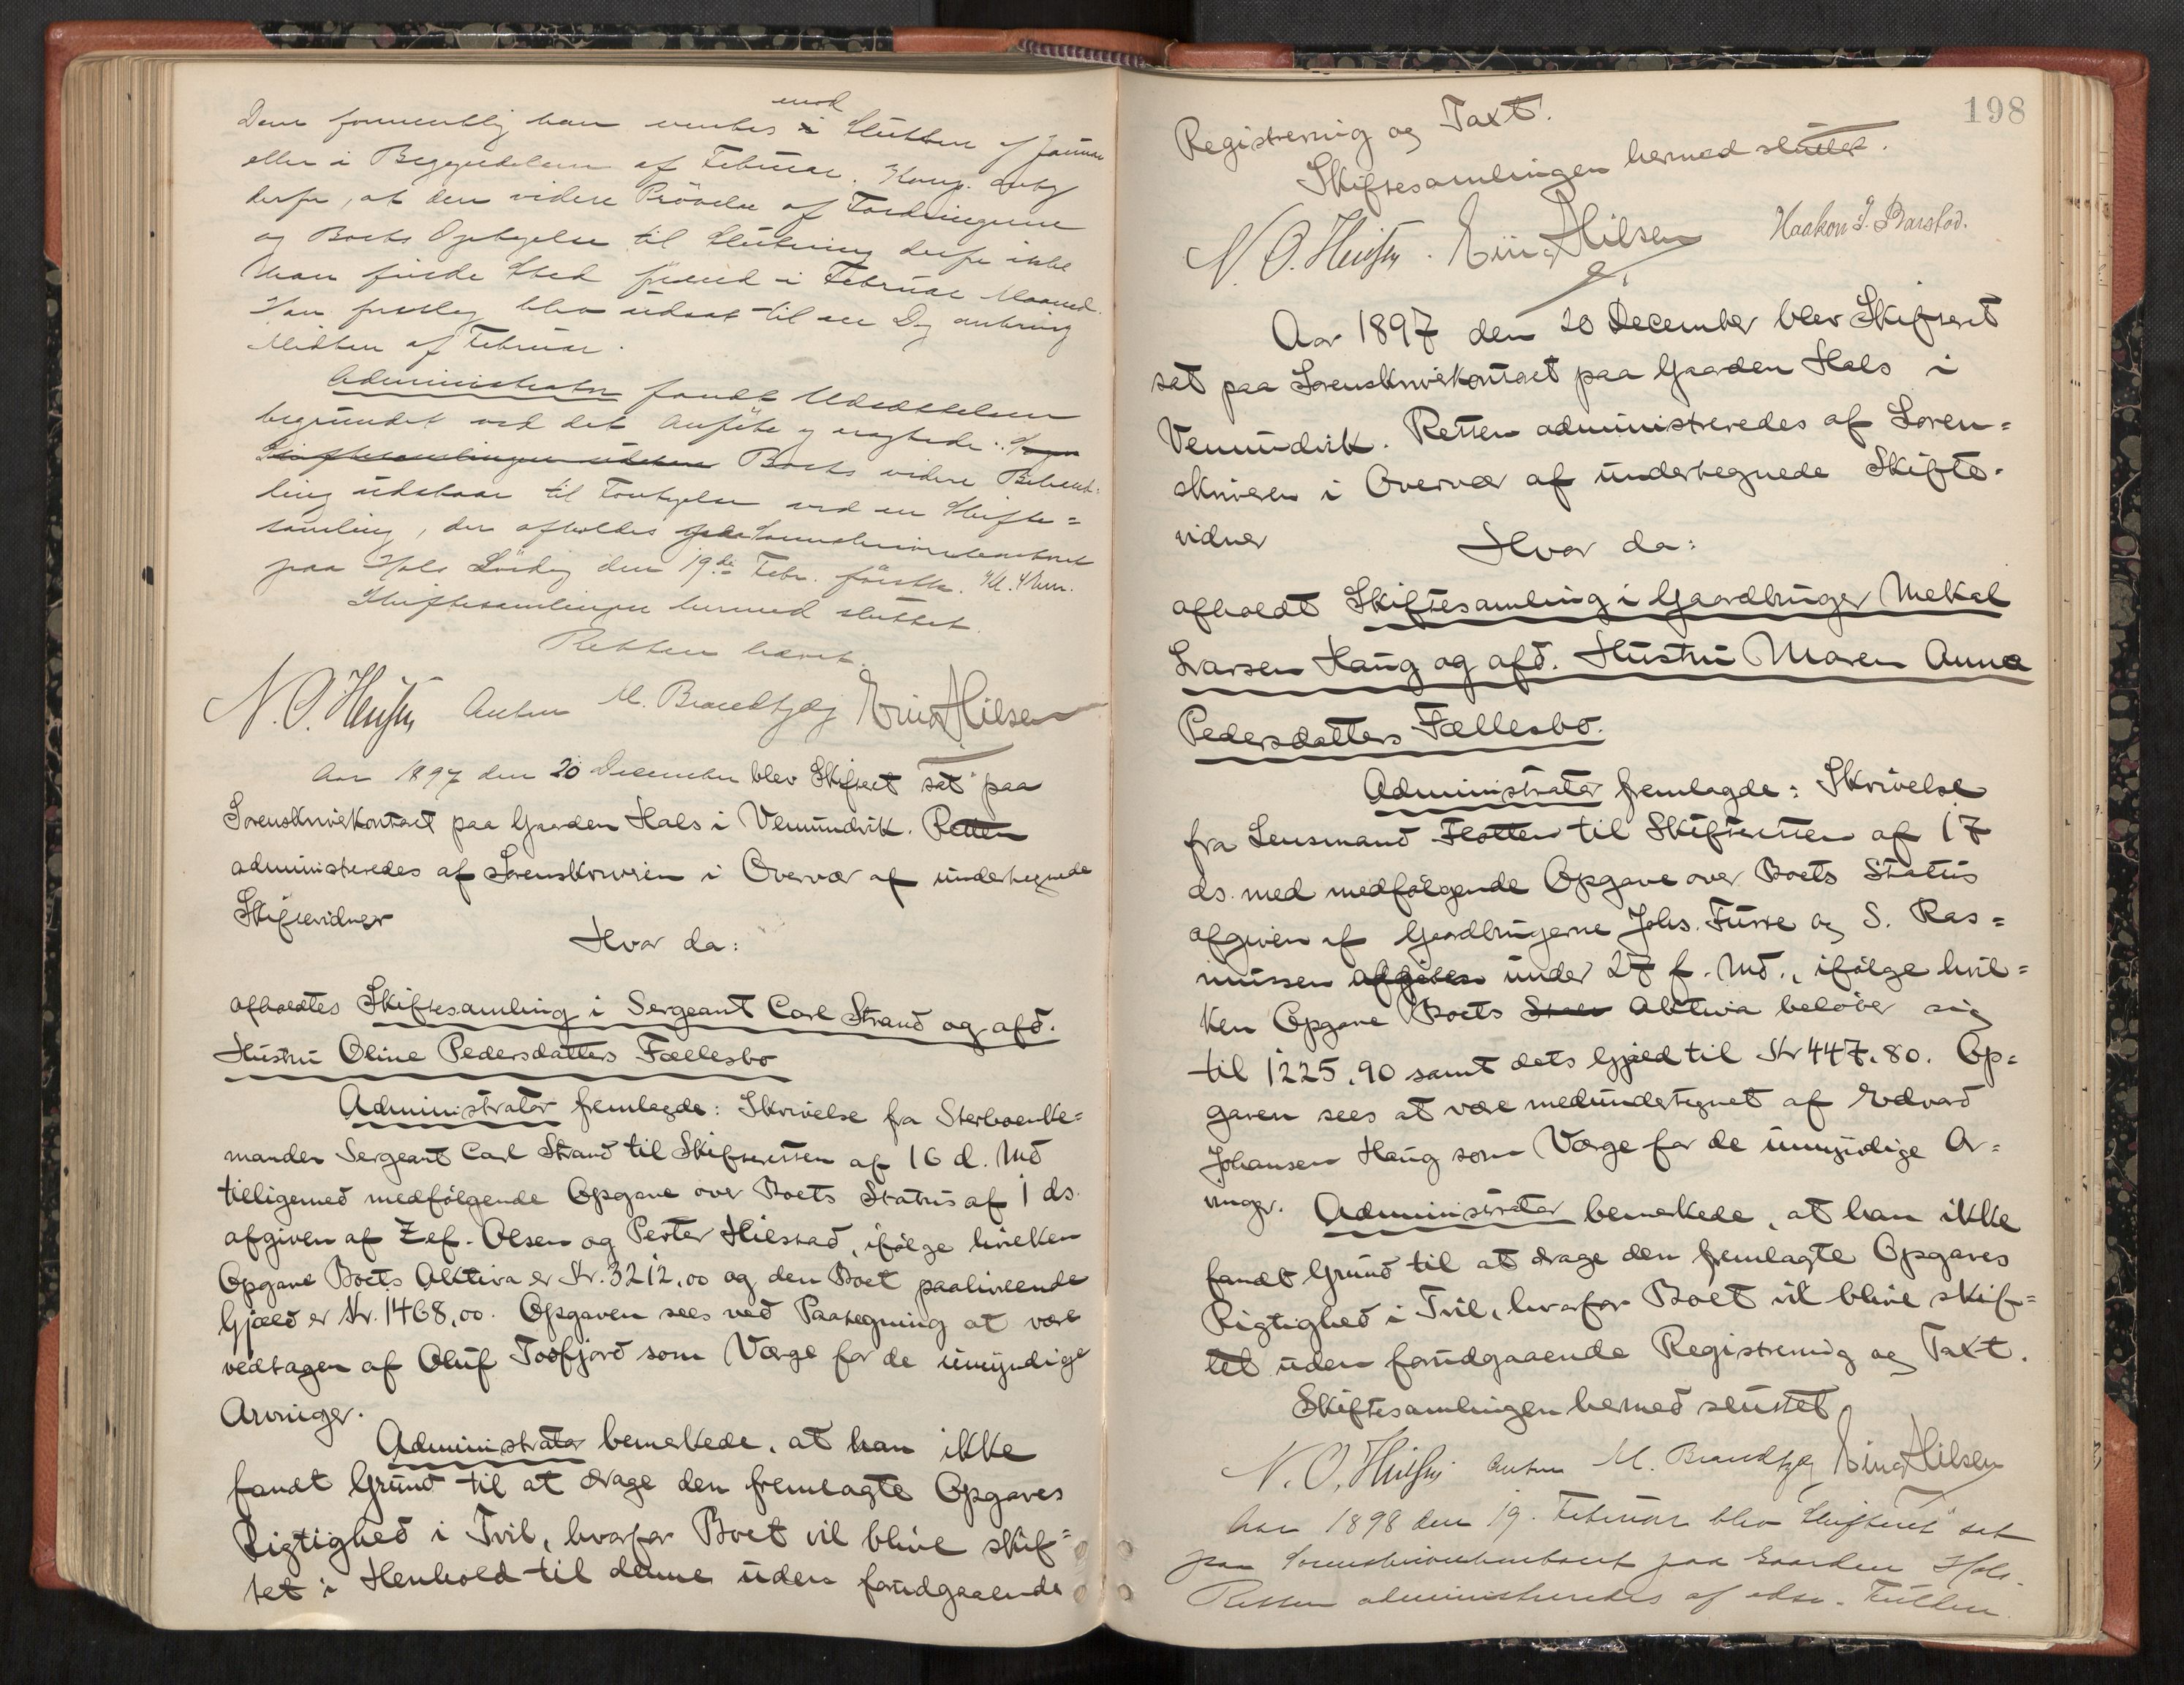 mod
Dom formentlig kan ventes i Slutten af Januar
eller i Begyndelsen af Februar. Komp. antog
derfor, at den videre Prövelse af Fordringerne
og Boets Opebyelse til Slutning derfor ikke
kan finde Sted förend i Februar Maaned.
Han foreslog blev udsat til en Dag omkring
Midten af Februar.
Administrator fandt Udsættelsen
begrundet ved det Anförte og eragtede:
Skiftesamlingen udsættes Boets videre Behand-
ling udstaar til Foretagelse ved en Skifte=
samling, der afholdes paa Sorenskriverkontoret
paa Hals Lördag den 19de Febr. förstk. Kl. 4 Em.
Skiftesamlingen hermed sluttet.
Retten hævet.
N. O. Anton M. Brandtzæg Nilsen
Aar 1897 den 20 December blev Skifteret sat paa
Sorenskriverkontoret paa Gaarden Hals i Vemundvik. Retten
administreredes af Sorenskriveren i Overvær af undertegnede
Skiftevidner
Hvor da:
afholdtes Skiftesamling i Sergeant Carl Strand og afd.
Hustru Oline Pedersdatters Fællesbo
Administrator fremlagde: Skrivelse fra Sterboenke=
manden Sergeant Carl Strand til Skifteretten af 16 d. Md
tilligemed medfölgende Opgave over Boets Status af 1 ds.
afgiven af Zef. Olsen og Petter Hilstad, ifölge hvilken
Opgave Boets Aktiva er Kr. 3212,00 og den Boet paahvilende
Gjæld er Kr. 1468,00. Opgaven sees ved Paategning at være
vedtagen af Oluf Tosfjord som Værge for de umyndige
Arvinger.
Administrator bemerkede, at han ikke
fandt Grund til at drage den fremlagte Opgaves
Rigtighed i Tvil, hvorfor Boet vil blive skif=
tet i Henhold til denne uden forudgaaende
198
Registrering og Taxt.
Skiftesamlingen hermed sluttet.
N. O. Nilsen Haakon J. Barstad.
Aar 1897 den 20 December blev Skifteret
sat paa Sorenskriverkontoret paa Gaarden Hals i
Vemundvik. Retten administreredes af Soren=
skriveren i Overvær af undertegnede Skifte-
vidner
Hvor da:
afholdt Skiftesamling i Gaardbruger Mekal
Larsen Haug og afd. Hustru Maren Anna
Pedersdatters Fællesbo.
Administrator fremlagde: Skrivelse
fra Lensmand Flotten til Skifteretten af 17
ds. med medfölgende Opgave over Boets Status
afgiven af Gaardbrugerne Johs. Furre og S. Ras=
mussen afgiven under 27 f. Md., ifölge hvil=
ken Opgave Boets Aktiva belöber sig
til 1225,90 samt dets Gjæld til Kr 447,80. Op=
gaven sees at være medundertegnet af Edvard
Johansen Haug som Værge for de umyndige Ar=
vinger. Administrator bemerkede, at han ikke
fandt Grund til at drage den fremlagte Opgaves
Rigtighed i Tvil, hvorfor Boet vil blive skif=
tet uden forudgaaende Registrering og Taxt.
Skiftesamlingen hermed sluttet
N. O. Anton M. Brandtzæg Nilsen
Aar 1898 den 19. Februar blev Skifteret sat
paa Sorenskriverkontoret paa Gaarden Hals.
Retten administreredes af edsv. Fuldm.